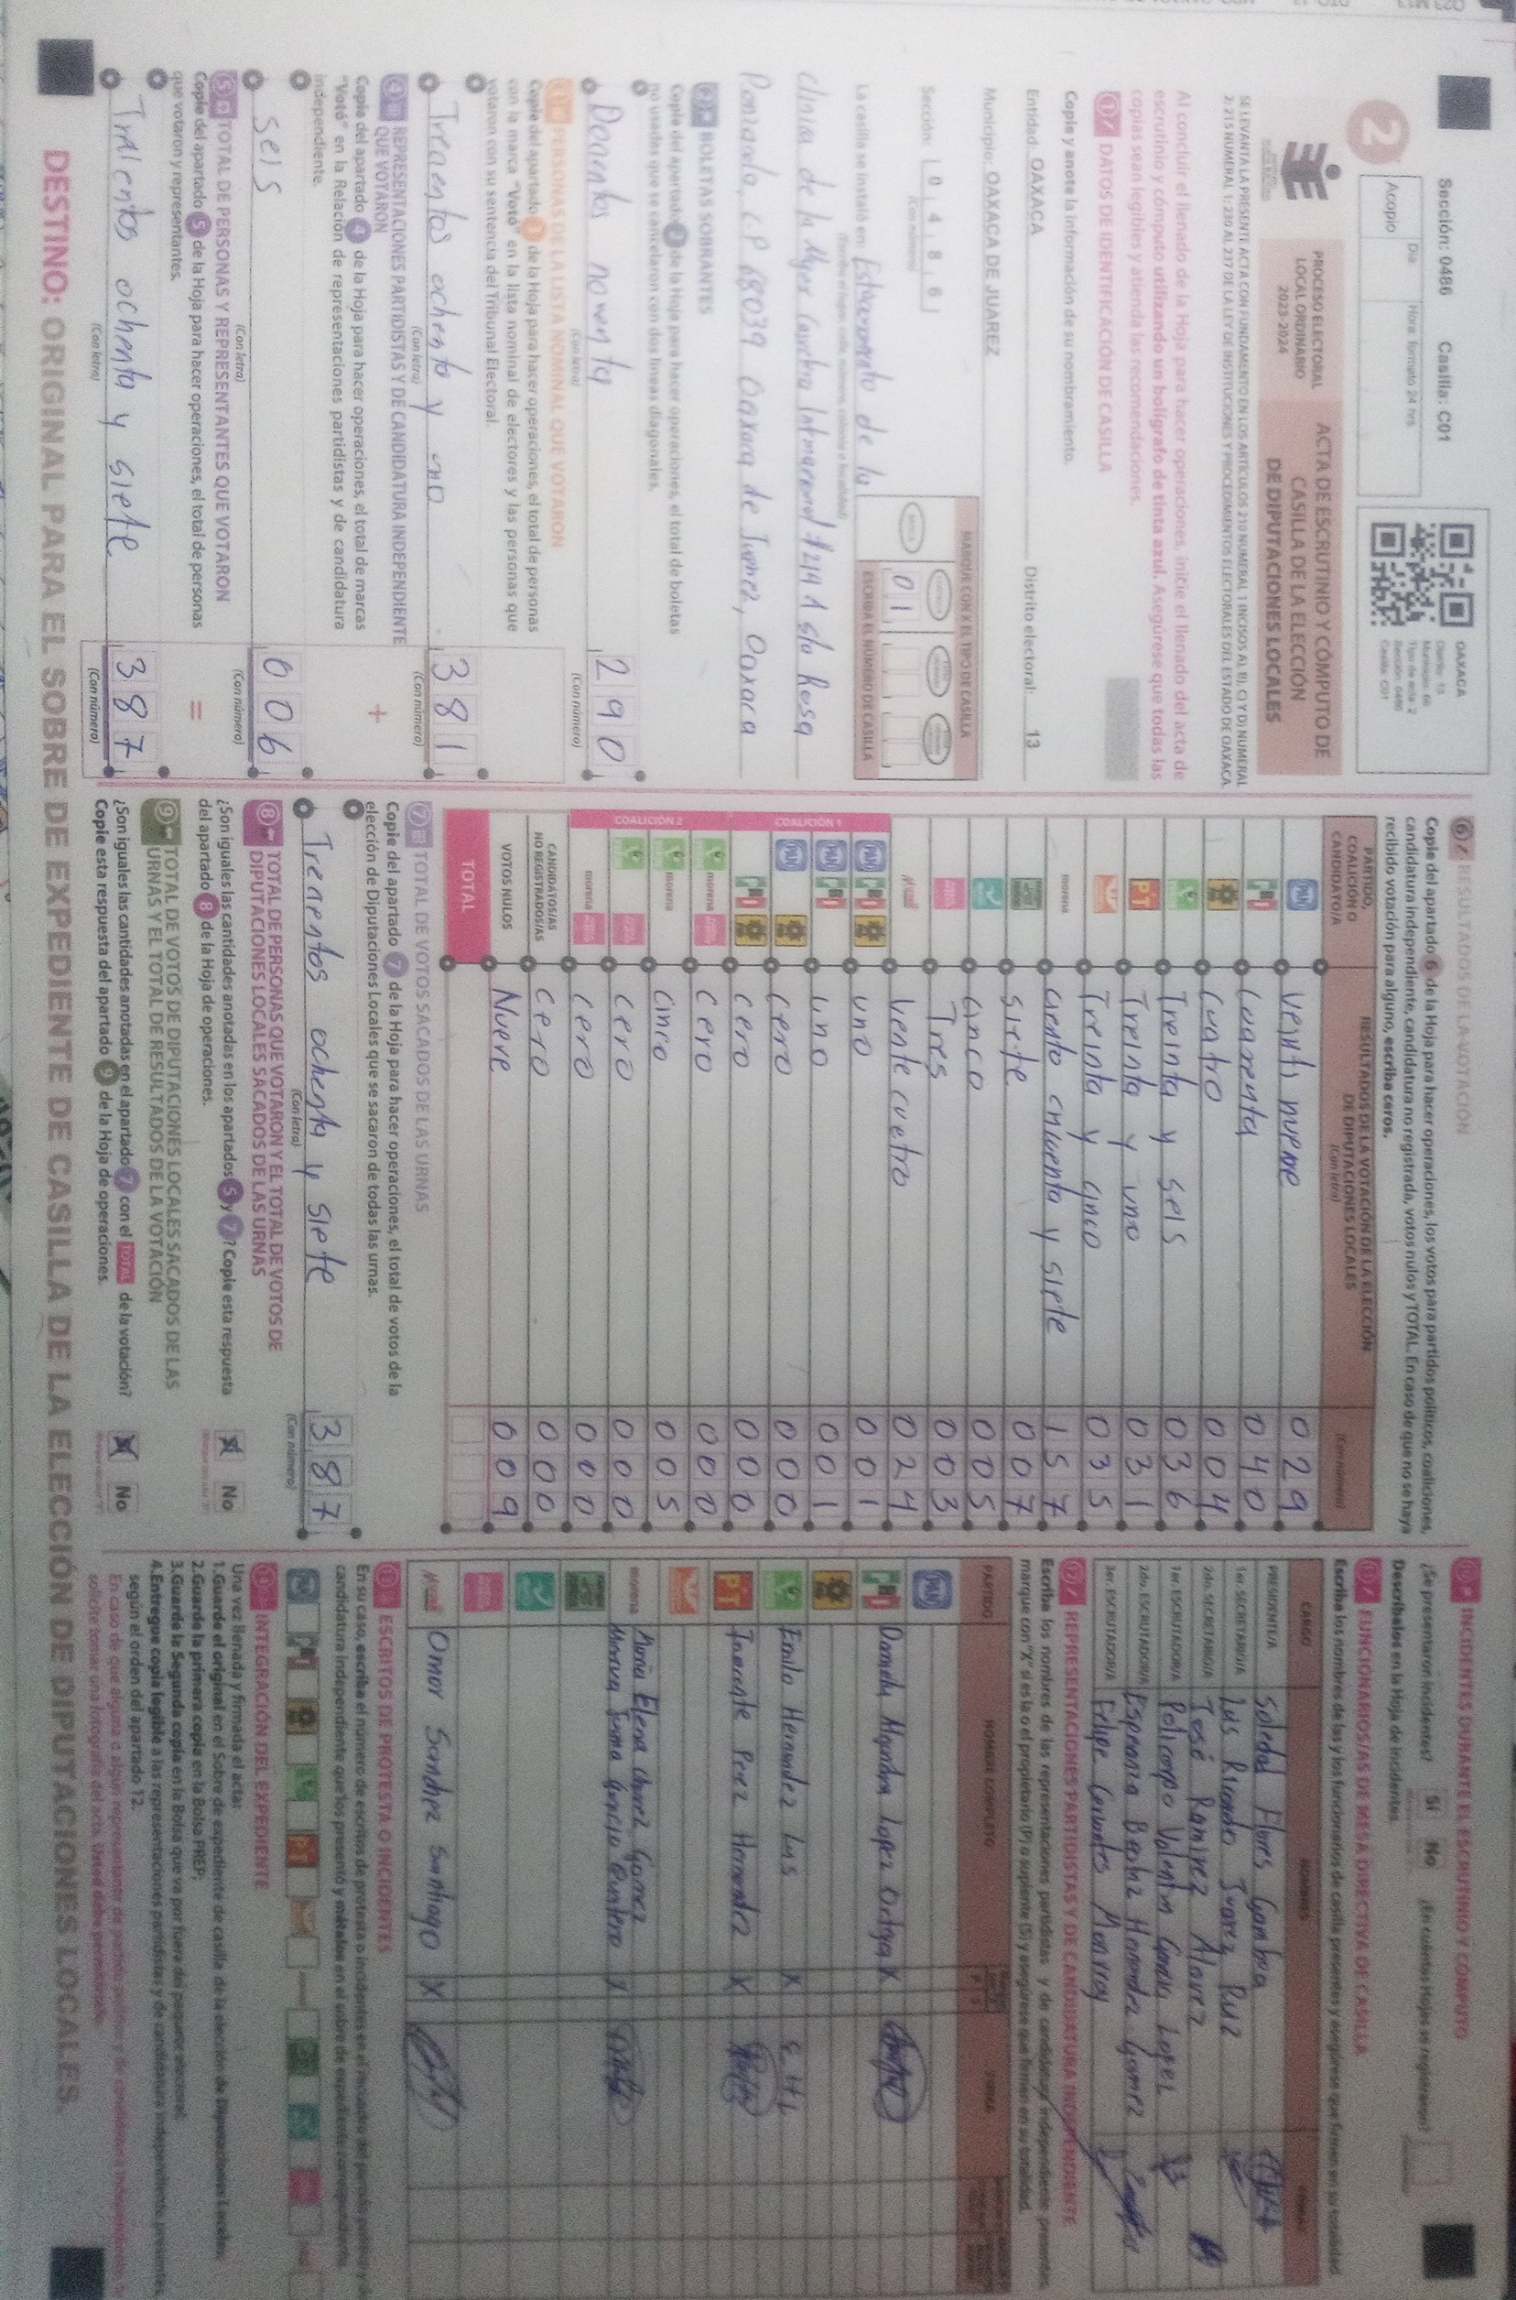 Sección: 0486 Casilla: C01
Día Hora: formato 24 hrs
Acopio
2
OAXACA
Distrito: 13
Tipo de acta: 2
Sección: 0486
Casilla: C01
PROCESO ELECTORAL
LOCAL ORDINARIO
2023-2024
ACTA DE ESCRUTINIO Y CÓMPUTO DE
CASILLA DE LA ELECCIÓN
DE DIPUTACIONES LOCALES
SE LEVANTA LA PRESENTE ACTA CON FUNDAMENTO EN LOS ARTÍCULOS 210 NUMERAL 1 INCISOS A), B), C) Y D) NUMERAL
2; 215 NUMERAL 1; 230 AL 237 DE LA LEY DE INSTITUCIONES Y PROCEDIMIENTOS ELECTORALES DEL ESTADO DE OAXACA.
Al concluir el llenado de la Hoja para hacer operaciones, inicie el llenado del acta de
escrutinio y cómputo utilizando un bolígrafo de tinta azul. Asegúrese que todas las
copias sean legibles y atienda las recomendaciones.
1 DATOS DE IDENTIFICACIÓN DE CASILLA
Copie y anote la información de su nombramiento.
Entidad: OAXACA Distrito electoral: 13
Municipio: OAXACA DE JUAREZ
Sección: 0486
(Con número)
MARQUE CON X EL TIPO DE CASILLA
ESCRIBA EL NÚMERO DE CASILLA
01
La casilla se instaló en: Estacionamiento de la
clinia de la Mujer Carretera Internacional # 214 A Sta Rosa
Panzacola, CP 68039 Oaxaca de Juarez, Oaxaca
2 BOLETAS SOBRANTES
Copie del apartado 2 de la Hoja para hacer operaciones, el total de boletas
no usadas que se cancelaron con dos líneas diagonales.
Docintos noventa 290
(Con letra) (Con número)
3 PERSONAS DE LA LISTA NOMINAL QUE VOTARON
Copie del apartado 3 de la Hoja para hacer operaciones, el total de personas
con la marca "Votó" en la lista nominal de electores y las personas que
votaron con su sentencia del Tribunal Electoral.
Trecentos ochenta y uno 381
(Con letra) (Con número)
4 REPRESENTACIONES PARTIDISTAS Y DE CANDIDATURA INDEPENDIENTE
QUE VOTARON
+
Copie del apartado 4 de la Hoja para hacer operaciones, el total de marcas
"Votó" en la Relación de representaciones partidistas y de candidatura
independiente.
seis 006
(Con letra) (Con número)
5 TOTAL DE PERSONAS Y REPRESENTANTES QUE VOTARON
=
Copie del apartado 5 de la Hoja para hacer operaciones, el total de personas
que votaron y representantes.
Tralentos ochenta y siete 387
(Con letra) (Con número)
6 RESULTADOS DE LA VOTACIÓN
Copie del apartado 6 de la Hoja para hacer operaciones, los votos para partidos políticos, coaliciones,
candidatura independiente, candidatura no registrada, votos nulos y TOTAL. En caso de que no se haya
recibido votación para alguno, escriba ceros.
PARTIDO,
COALICIÓN O
CANDIDATO/A
RESULTADOS DE LA VOTACIÓN DE LA ELECCIÓN
DE DIPUTACIONES LOCALES
(Con letra) (Con número)
PAN Veinti nueve 029
PRI Cuarenta 040
cuatro 004
Treinta y seis 036
PT Treinta y uno 031
Treinta y cinco 035
morena ciento cincuenta y siete 157
siete 007
cinco 005
Tres 003
Veinte cuatro 024
COALICIÓN 1
PAN PRI uno 001
PAN PRI uno 001
PAN cero 000
PRI cero 000
COALICIÓN 2
morena cero 000
morena cinco 005
cero 000
morena cero 000
CANDIDATOS/AS
NO REGISTRADOS/AS cero 000
VOTOS NULOS Nueve 009
TOTAL
7 TOTAL DE VOTOS SACADOS DE LAS URNAS
Copie del apartado 7 de la Hoja para hacer operaciones, el total de votos de la
elección de Diputaciones Locales que se sacaron de todas las urnas.
Trecentos ochenta y siete 387
(Con letra) (Con número)
8 TOTAL DE PERSONAS QUE VOTARON Y EL TOTAL DE VOTOS DE
DIPUTACIONES LOCALES SACADOS DE LAS URNAS
¿Son iguales las cantidades anotadas en los apartados 5 y 7? Copie esta respuesta
del apartado 8 de la Hoja de operaciones.
No
9 TOTAL DE VOTOS DE DIPUTACIONES LOCALES SACADOS DE LAS
URNAS Y EL TOTAL DE RESULTADOS DE LA VOTACIÓN
¿Son iguales las cantidades anotadas en el apartado 7 con el TOTAL de la votación?
Copie esta respuesta del apartado 9 de la Hoja de operaciones.
No
10 INCIDENTES DURANTE EL ESCRUTINIO Y CÓMPUTO
¿Se presentaron incidentes? Sí No ¿En cuántas Hojas se registraron?
Descríbalos en la Hoja de incidentes.
11 FUNCIONARIOS/AS DE MESA DIRECTIVA DE CASILLA
Escriba los nombres de las y los funcionarios de casilla presentes y asegúrese que firmen en su totalidad.
CARGO NOMBRES FIRMAS
PRESIDENTE/A Soledad Flores Gamboa
1er. SECRETARIO/A Luis Ricardo Juarez Ruiz
2do. SECRETARIO/A José Ramirez Alavez
1er. ESCRUTADOR/A Policarpo Valentin Garcia Lopez
2do. ESCRUTADOR/A Esperanza Beatriz Hernandez Gomez
3er. ESCRUTADOR/A Felipe Cervantes Monrroy
12 REPRESENTACIONES PARTIDISTAS Y DE CANDIDATURA INDEPENDIENTE
Escriba los nombres de las representaciones partidistas y de candidatura independiente presentes,
marque con "X" si es la o el propietario (P) o suplente (S) y asegúrese que firmen en su totalidad.
PARTIDO NOMBRE COMPLETO FIRMA
PAN
PRI Daniela Alejandra Lopez Ortega X
Emilio Hernandez Luis X E H L
PT Inocente Perez Hernandez X
morena Maria Elena Chavez Gomez
X
Omar Sanchez Santiago X
13 ESCRITOS DE PROTESTA O INCIDENTES
En su caso, escriba el número de escritos de protesta o incidentes en el recuadro del partido político y de
candidatura independiente que los presentó y métalos en el sobre de expediente correspondiente.
INTEGRACIÓN DEL EXPEDIENTE
Una vez llenada y firmada el acta:
1.Guarde el original en el Sobre de expediente de casilla de la elección de Diputaciones Locales;
2.Guarde la primera copia en la Bolsa PREP;
3.Guarde la Segunda copia en la Bolsa que va por fuera del paquete electoral;
4.Entregue copia legible a las representaciones partidistas y de candidatura independiente, presentes,
según el orden del apartado 12.
En caso de que alguna o algún representante de partido político y de candidatura independiente,
solicite tomar una fotografía del acta, Usted debe permitírselo.
DESTINO: ORIGINAL PARA EL SOBRE DE EXPEDIENTE DE CASILLA DE LA ELECCIÓN DE DIPUTACIONES LOCALES.